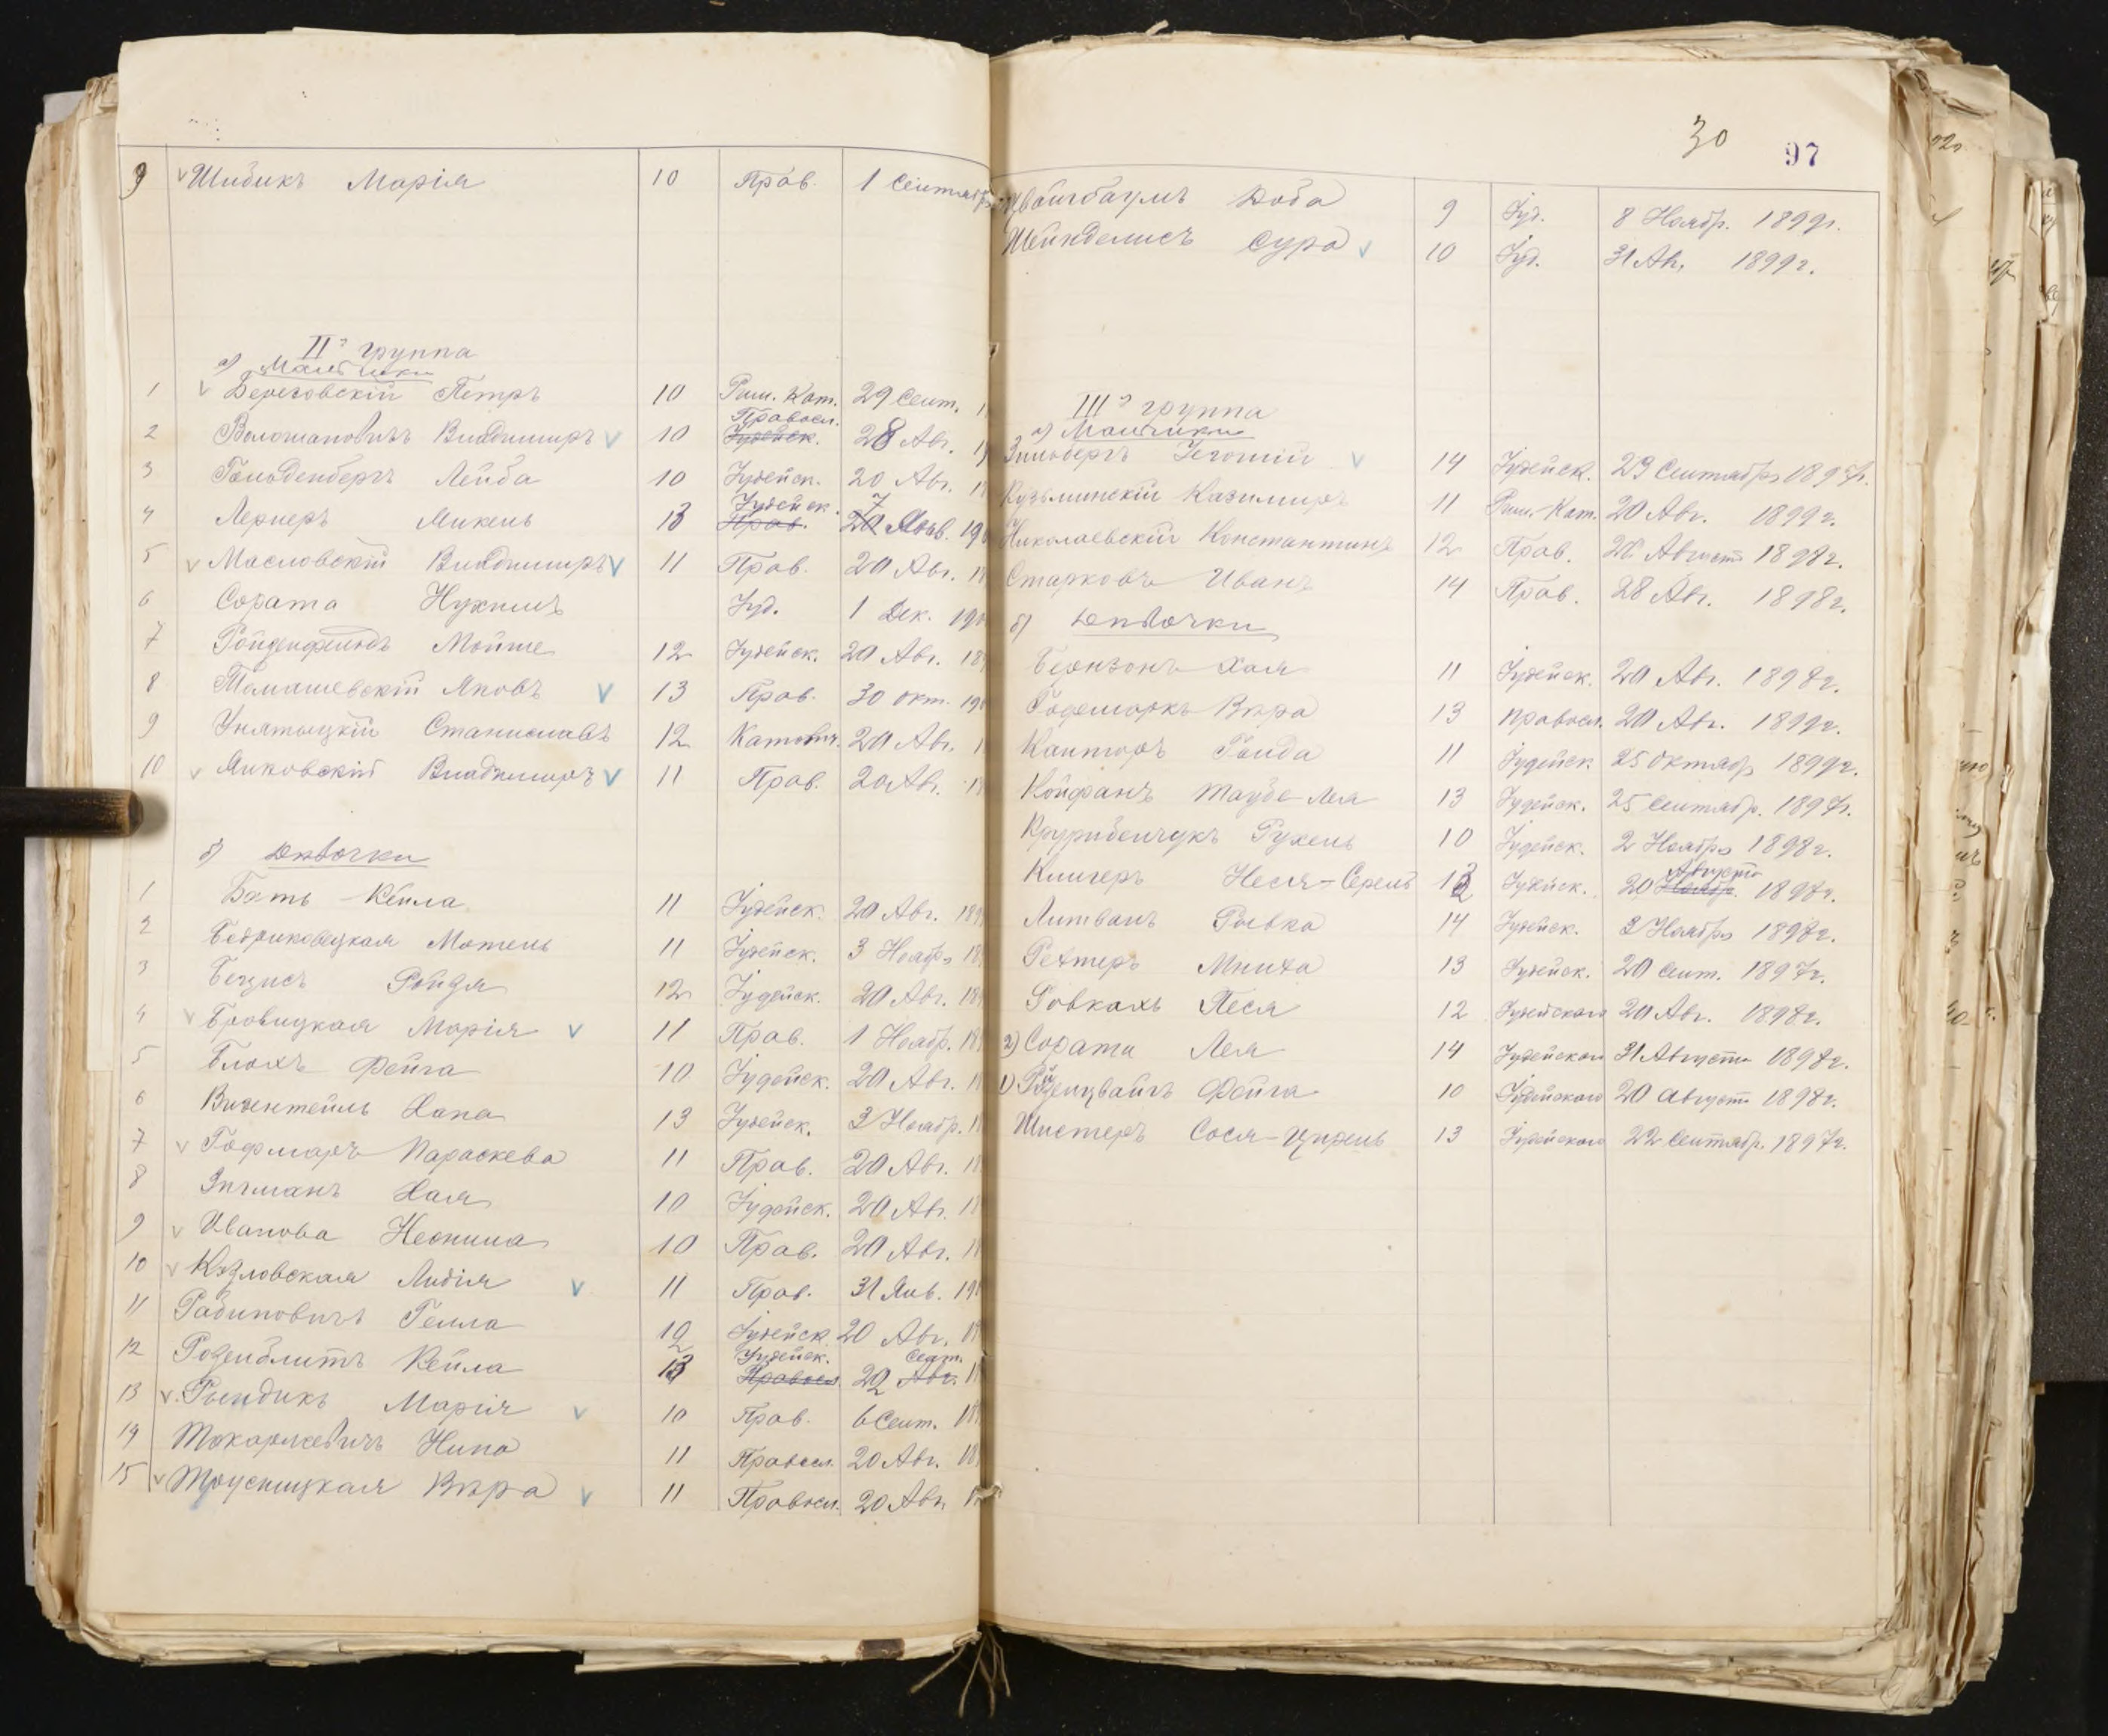 9 Шидикъ Марія 10 Прав. 1 Сентябр
IIя группа
а) Мальчики
1 Береговскій Петръ 10 Рим. Кат. 29 Сент.
2 Воломановичъ Владиміръ 10 Іудейск. Правосл. 28 Авг.
3 Гольденбергъ Лейба 10 Іудейск. 20 Авг.
4 Лернеръ Микель 13 Прав. Іудейск. 20 7 Янв. 190
5 Масловскій Владиміръ 11 Прав. 20 Авг.
6 Сората Нухимъ Іуд. 1 Дек. 190
7 Ройзенфельдъ Мойше 12 Іудейск. 20 Авг. 18
8 Томашевскій Яковъ 13 Прав. 30 Окт. 190
9 Унятыцкій Станиславъ 12 Католич. 20 Авг.
10 Янковскій Владиміръ 11 Прав. 20 Авг.
б) Дѣвочки
1 Бать Кейла 11 Іудейск. 20 Авг. 189
2 Мотель 11 Іудейск. 3 Ноябр. 18
3 Ройзя 12 Іудейск. 20 Авг. 189
4 Бровицкая Марія 11 Прав. 1 Ноябр. 18
5 Блохъ Фейга 10 Іудейск. 20 Авг.
6 Визентейль Хана 13 Іудейск. 3 Ноябр.
7 Гофмаръ Параскева 11 Прав. 20 Авг.
8 Зигманъ Хая 10 Іудейск. 20 Авг.
9 Иванова Неонила 10 Прав. 20 Авг.
10 Козловская Лидія 11 Прав. 31 Янв. 190
11 Рабиновичъ Гелла 12 Іудейск. 20 Авг.
12 Розенблитъ Кейла 13 Правосл. Іудейск. 22 Авг. Сент.
13 Рындикъ Марія 10 Прав. 6 Сент. 18
14 Токаржевичъ Нина 11 Правосл. 20 Авг. 18
15 Трусницкая Вѣра 11 Правосл. 20 Авг.
30 97
Цвайгбаумъ Доба 9 Іуд. 8 Ноябр. 1899г.
Шейнделисъ Сура 10 Іуд. 31 Авг. 1899г.
IIIя группа
а) Мальчики
Зильбергъ 14 Іудейск. 29 Сентябр. 1897г.
Кузьминскій Казимиръ 11 Рим.-Кат. 20 Авг. 1899г.
Николаевскій Константинъ 12 Прав. Августа 1898г.
Старковъ Иванъ 14 Прав. 28 Авг. 1898г.
б) Дѣвочки
Берензонъ Хая 11 Іудейск. 20 Авг. 1898г.
Годемаркъ Вѣра 13 Правосл. 20 Авг. 1899г.
Канторъ Гольда 11 Іудейск. 25 Октябр. 1899г.
Койфанъ Таубе-Лея 13 Іудейск. 25 Сентябр. 1897г.
Рухель 10 Іудейск. 2 Ноябр. 1898г.
Клигеръ Неся-Серель 12 Іудейск. 20 Ноябр. Августа 1898г.
Литванъ Ривка 14 Іудейск. 3 Ноябр. 1898г.
Рехтеръ Мниха 13 Іудейск. 20 Сент. 1897г.
Ровкахъ Песя 12 Іудейскаго 20 Авг. 1898г.
2) Сората Лея 14 Іудейскаго 31 Августа 1898г.
1) Ройзенцвайгъ Фейга 10 Іудейскаго 20 Августа 1898г.
Шистеръ Сося-Цизель 13 Іудейскаго 22 Сентябр. 1897г.